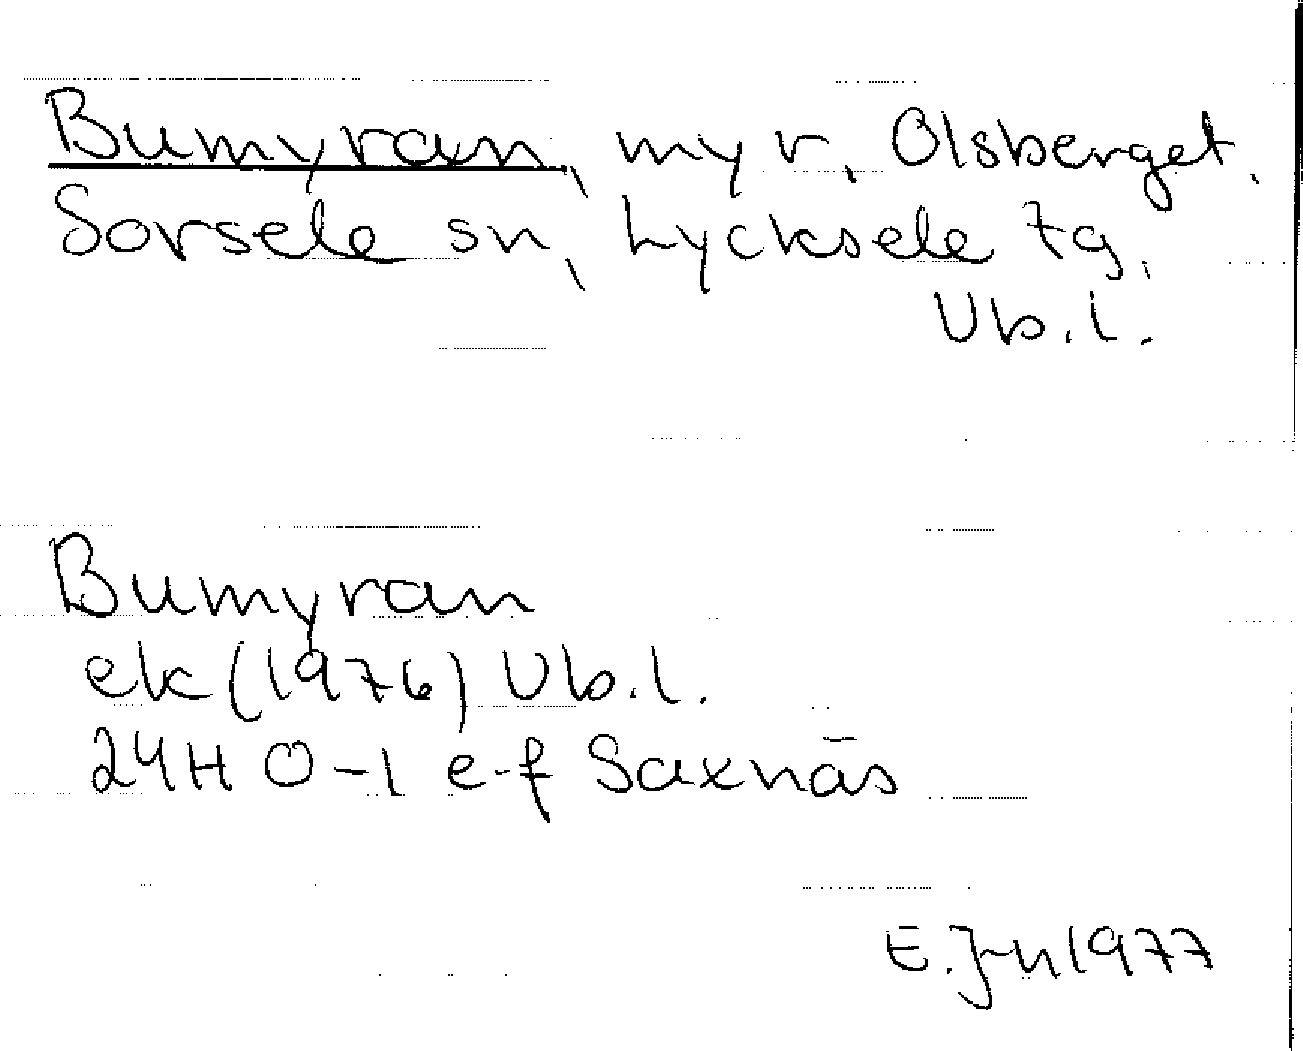 Bumyran, myr, Olsberget.
Sorsele sn, Lycksele tg,
Vb.l.
Bumyran
ek (1976) Vb.l.
24H 0-1 e-f Saxnäs
E. J-n 1977